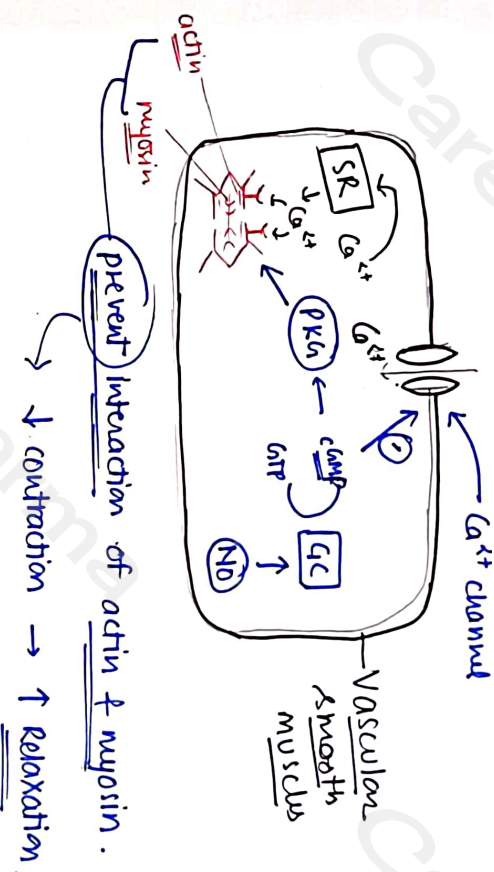 Ca²⁺ channel
Vascular
smooth
muscles
SR
Ca²⁺
Ca²⁺
Ca²⁺
cGMP
GTP
GC
NO
PKG
actin
myosin
prevent interaction of actin & myosin.
↓ contraction → ↑ Relaxation